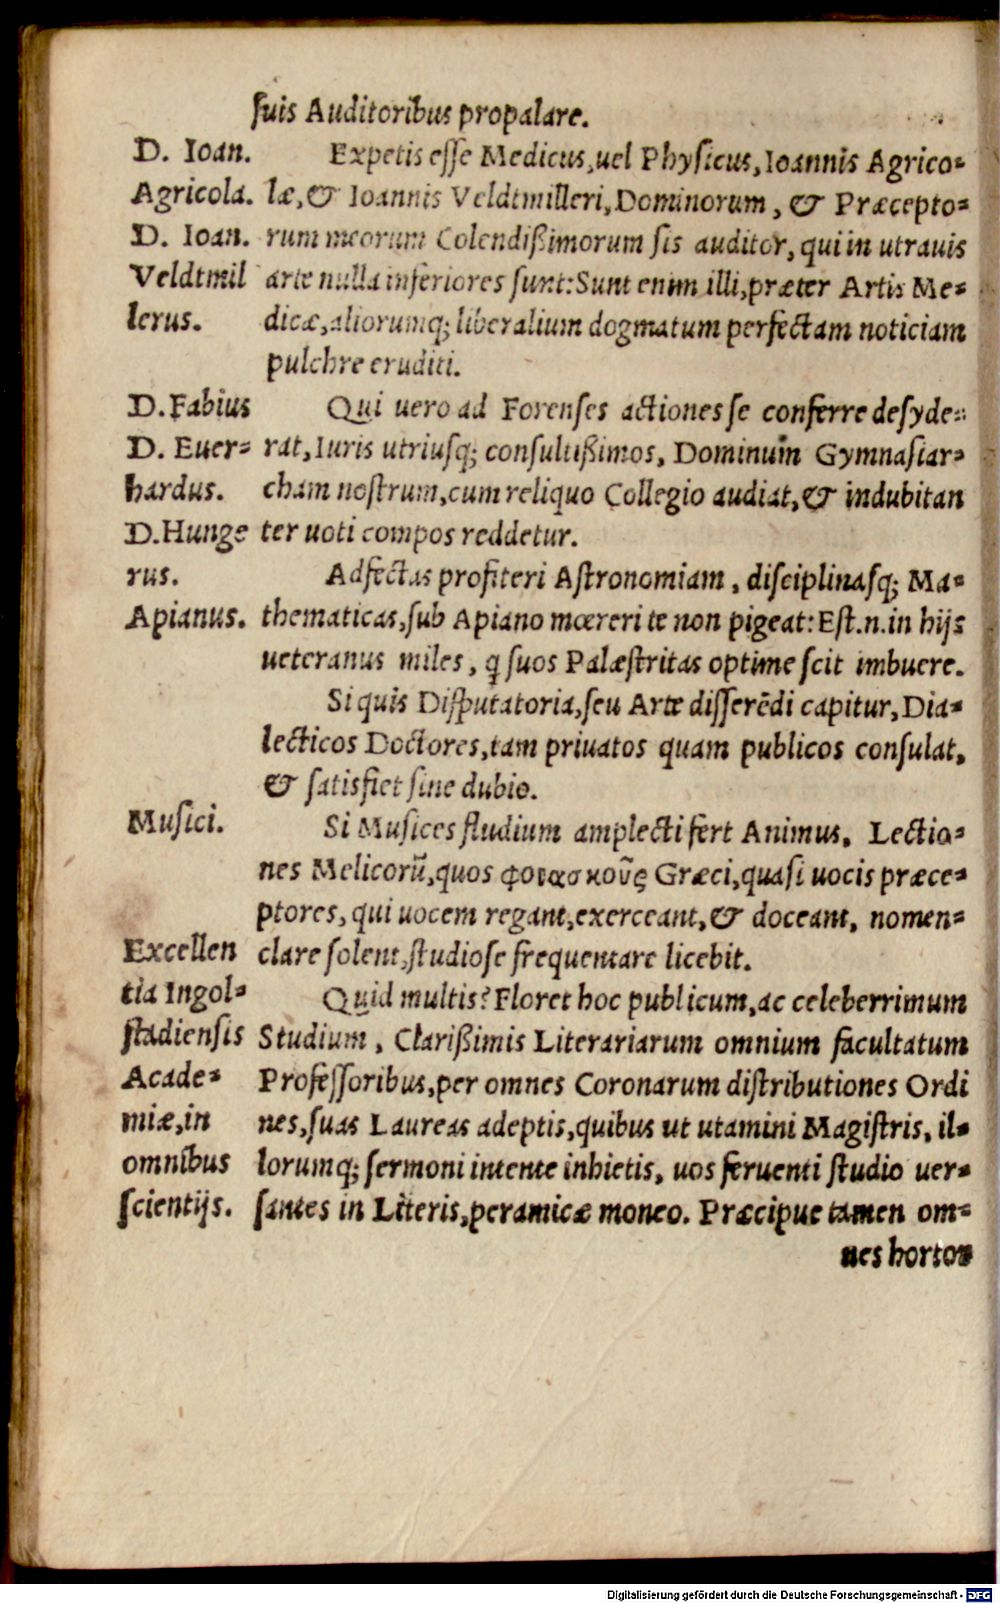 suis Auditoribus propalare.
D. Ioan. Expetis esse Medicus, uel Physicus, Ioannis Agrico-
Agricola. læ, & Ioannis Veldtmilleri, Dominorum, & Præcepto-
D. Ioan. rum meorum Colendißimorum sis auditor, qui in utrauis
Veldtmil arte nulla inferiores sunt: Sunt enim illi, præter Artis Me-
lerus. dicæ, aliorumq; liberalium dogmatum perfectam noticiam
pulchre eruditi.
D. Fabius Qui uero ad Forenses actiones se conferre desyde-
D. Euer- rat, Iuris utriusq; consultißimos, Dominum Gymnasiar-
hardus. cham nostrum, cum reliquo Collegio audiat, & indubitan
D. Hunge ter uoti compos reddetur.
rus. Adfectas profiteri Astronomiam, disciplinasq; Ma-
Apianus. thematicas, sub Apiano mœreri te non pigeat: Est.n. in hijs
ueteranus miles, q̃ suos Palæstritas optime scit imbuere.
Si quis Disputatoria, seu Arte disserẽdi capitur, Dia-
lecticos Doctores, tam priuatos quam publicos consulat,
& satisfiet sine dubio.
Musici. Si Musices studium amplecti fert Animus, Lectio-
nes Melicorũ, quos φονασκοῦς Græci, quasi uocis præce-
ptores, qui uocem regant, exerceant, & doceant, nomen-
Excellen clare solent, studiose frequentare licebit.
tia Ingol- Quid multis? Floret hoc publicum, ac celeberrimum
stadiensis Studium, Clarißimis Literariarum omnium facultatum
Acade- Professoribus, per omnes Coronarum distributiones Ordi
miæ, in nes, suas Laureas adeptis, quibus ut utamini Magistris, il-
omnibus lorumq; sermoni intente inhietis, uos feruenti studio uer-
scientijs. santes in Literis, peramicæ moneo. Præcipue tamen om-
nes hortor
Digitalisierung gefördert durch die Deutsche Forschungsgemeinschaft - DFG